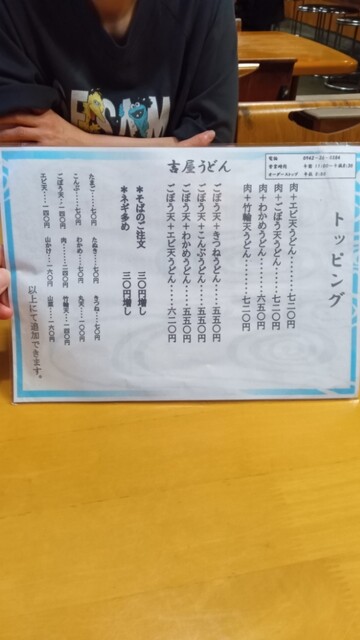 吉屋うどん
電話 0942-
営業時間 午前 11:00〜午後8:30
オーダーストップ 午後 8:00
トッピング
肉＋エビ天うどん………七二〇円
肉＋ごぼう天うどん………七二〇円
肉＋わかめうどん………六五〇円
肉＋竹輪天うどん………七二〇円
ごぼう天＋きつねうどん……五五〇円
ごぼう天＋こんぶうどん……五五〇円
ごぼう天＋わかめうどん……五五〇円
ごぼう天＋エビ天うどん……六二〇円
＊そばのご注文 三〇円増し
＊ネギ多め 三〇円増し
たまご……七〇円 たぬき……七〇円 きつね……七〇円
こんぶ……七〇円 わかめ……七〇円 丸天……一〇〇円
ごぼう天…一四〇円 肉……二四〇円 竹輪天…二四〇円
エビ天…一四〇円 山かけ…一六〇円 山菜……一六〇円
以上にて追加できます。